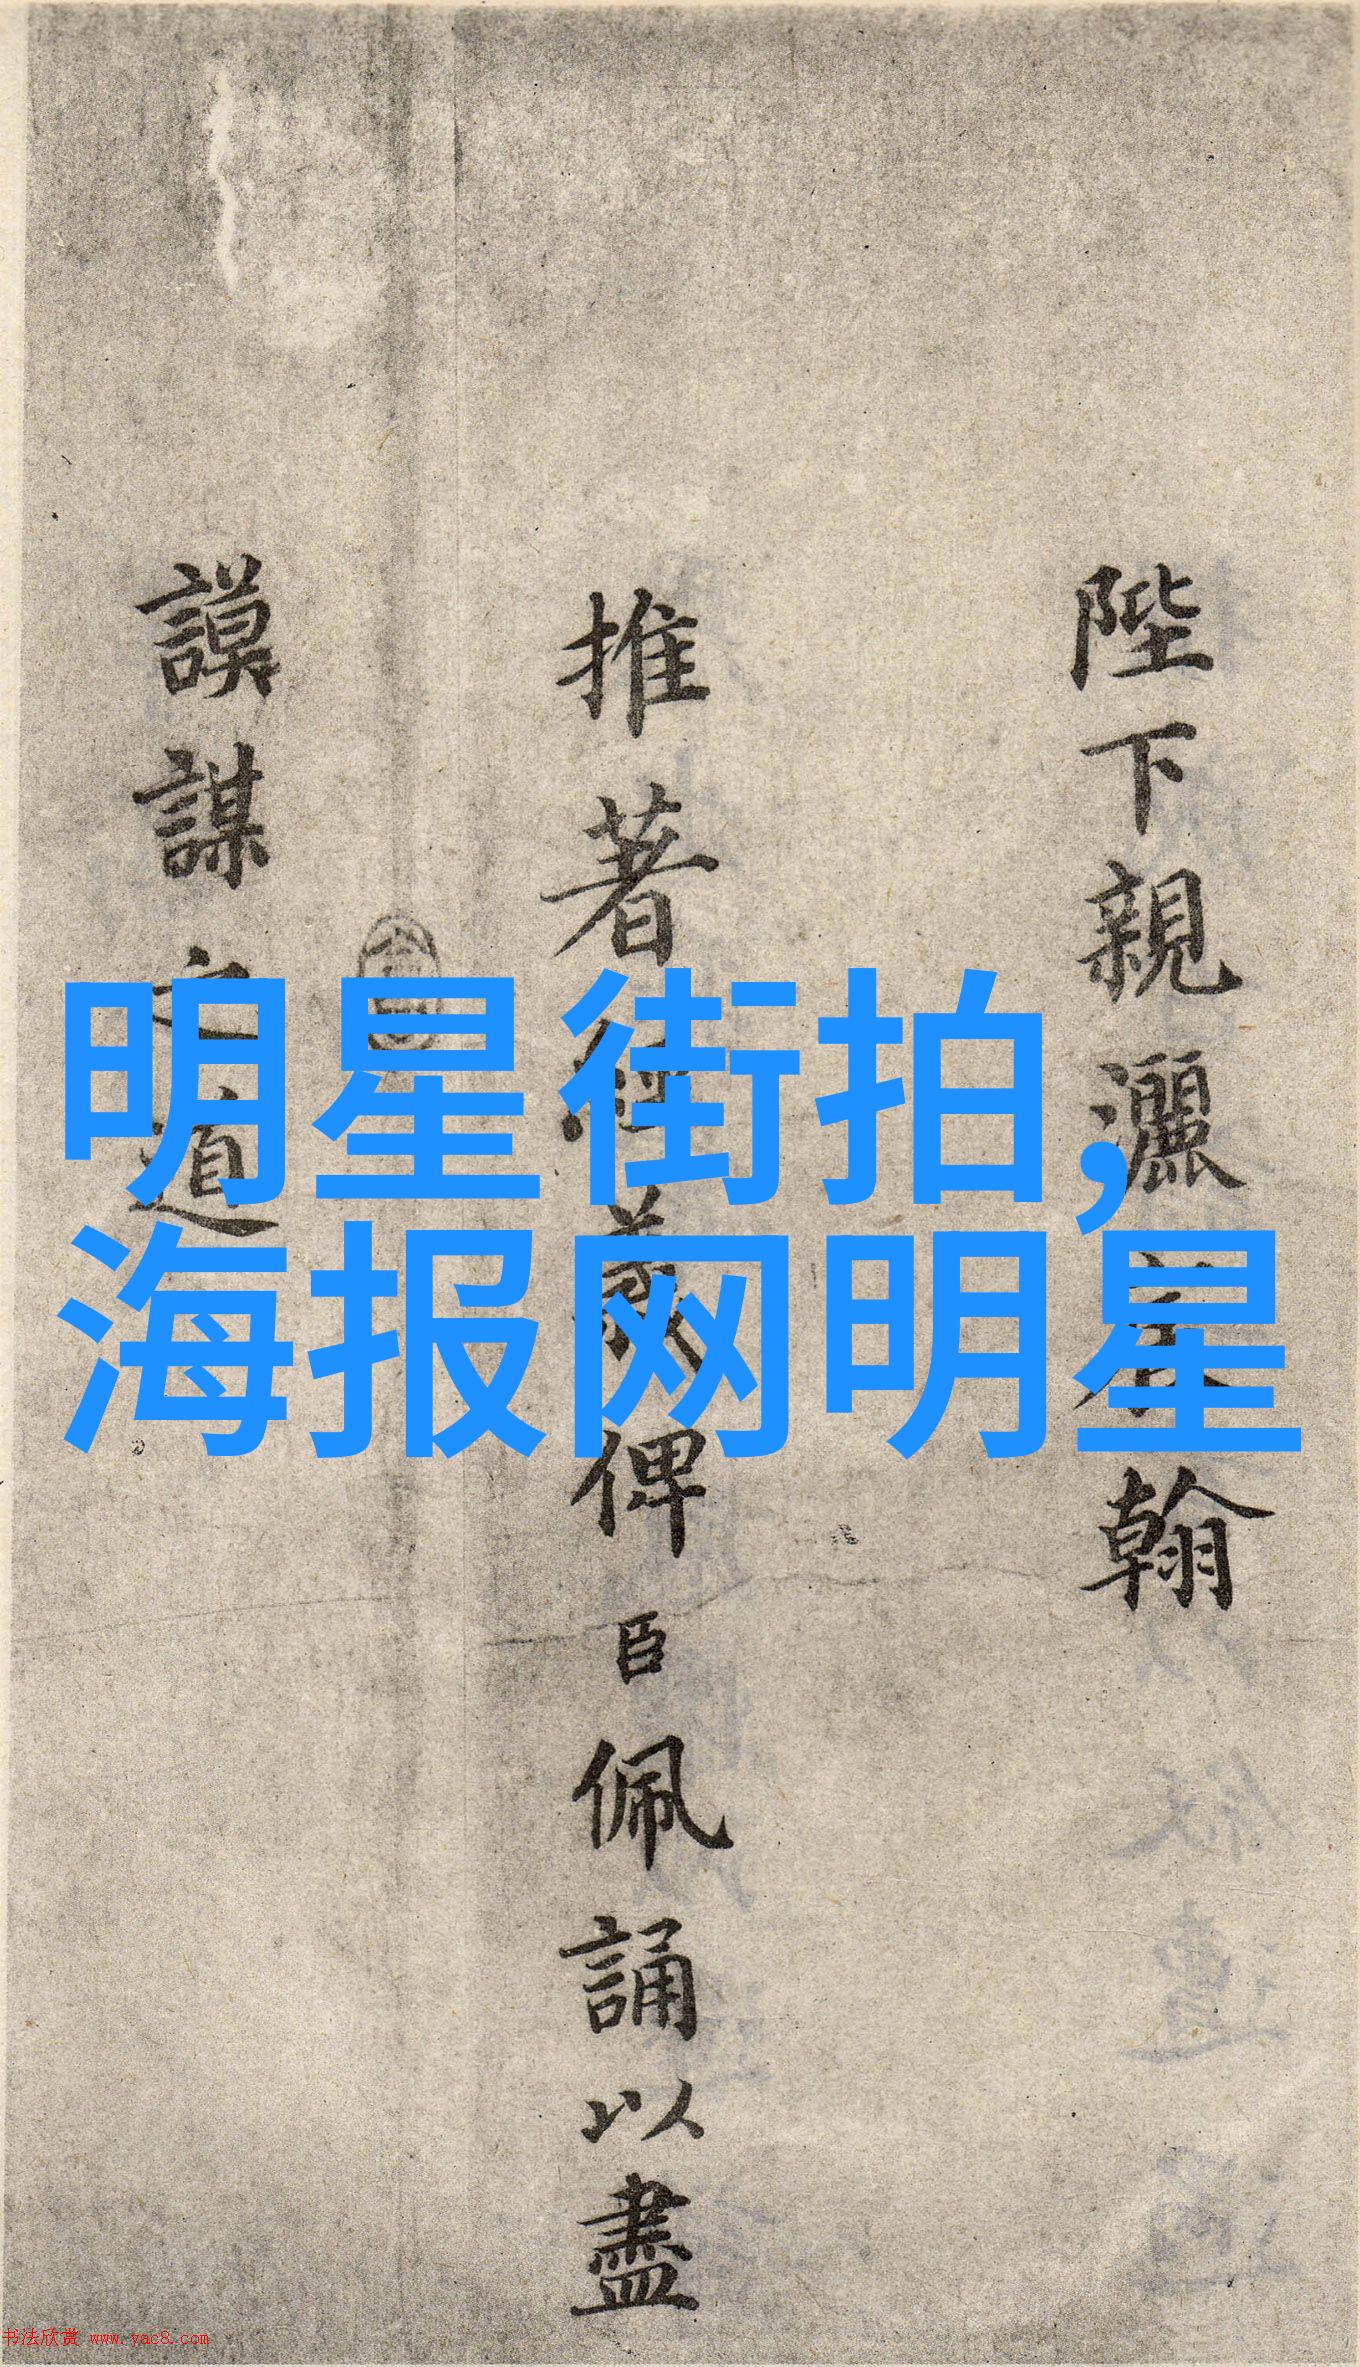 陛下親灑宸翰
推著經義俾臣佩誦以盡
謨謀之道
明星街拍,
海报网明星
书法欣赏 www.yac8.com